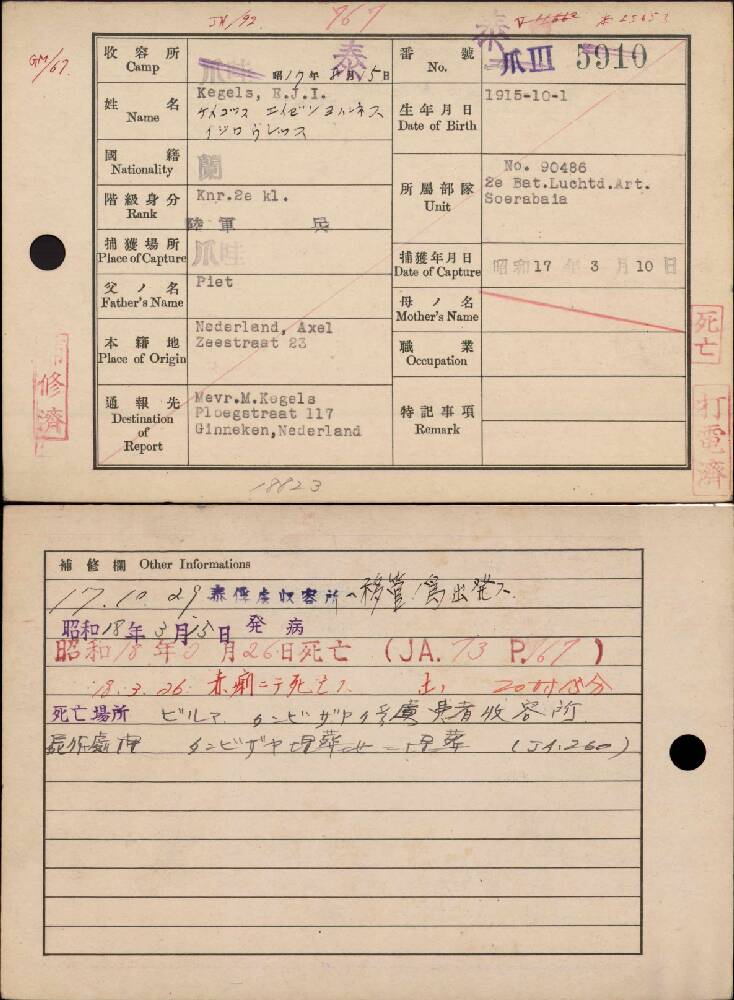 JA/92
767
GM/67.
収容所 Camp
爪哇
泰
昭17年8月15日
番號 No.
爪III 5910
姓名 Name
Kegels, E.J.I.
生年月日 Date of Birth
1915-10-1
國籍 Nationality
蘭
階級身分 Rank
Knr.2e kl.
陸軍 兵
所屬部隊 Unit
No. 90486
2e Bat.Luchtd.Art.
Soerabaia
捕獲場所 Place of Capture
爪哇
捕獲年月日 Date of Capture
昭和17年3月10日
父ノ名 Father's Name
Piet
母ノ名 Mother's Name
本籍地 Place of Origin
Nederland, Axel
Zeestraat 23
職業 Occupation
通報先 Destination of Report
Mevr.M.Kegels
Ploegstraat 117
Ginneken,Nederland
特記事項 Remark
修濟
死亡
打電濟
18823
補修欄 Other Informations
17.10.29 泰俘虜収容所ヘ移管ノ為出発ス
昭和18年3月15日 発病
昭和18年3月26日死亡 (JA.73 P.767)
18.3.26. 赤痢ニテ死亡ス 20時15分
死亡場所 ビルマ タンビザヤ俘虜患者収容所
屍体處理 タンビザヤ埋葬地ニ埋葬 (JA.260)